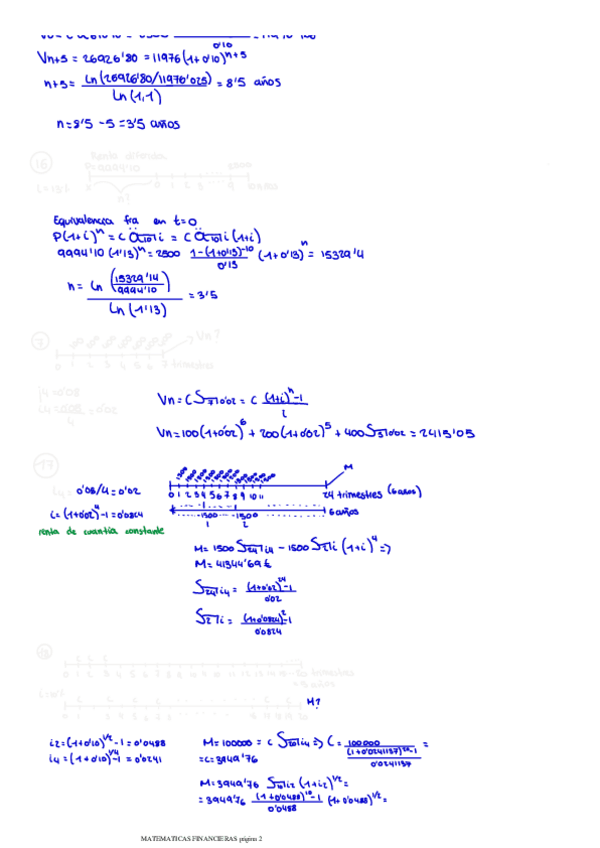 Vn+5 = 26926'80 = 11976 (1+0'10)^n+5
n+5 = Ln (26926'80/11976'025) / Ln (1,1) = 8'5 años
n = 8'5 - 5 = 3'5 años
16
Renta diferida
n?
Equivalencia fra en t=0
P(1+i)^n = C ä10|i = C a10|i (1+i)
9994'10 (1'13)^n = 2500 1-(1+0'13)^-10 / 0'13 (1+0'13) = 15329'4
n = Ln (15329'14 / 9994'10) / Ln (1'13) = 3'5
7
Vn?
0 1 2 3 4 5 6 7 trimestres
j4=0'08
i4=0'08/4=0'02
Vn = C S7|0'02 = C (1+i)^n-1 / i
Vn = 100(1+0'02)^6 + 200(1+0'02)^5 + 400 S5|0'02 = 2415'05
17
0'08/4 = 0'02
i = (1+0'02)^4-1 = 0'0824
renta de cuantía constante
M
0 1 2 3 4 5 6 7 8 9 10 11 24 trimestres (6 años)
-1500 -1500 6 años
1 2
M = 1500 S24|i4 - 1500 S2|i (1+i)^4 =>
M = 41344'69 €
S24|i4 = (1+0'02)^24-1 / 0'02
S2|i = (1+0'0824)^2-1 / 0'0824
M?
i2 = (1+0'10)^1/2 - 1 = 0'0488
i4 = (1+0'10)^1/4-1 = 0'0241
M = 100000 = C S20|i4 => C = 100000 / (1+0'0241137)^20-1 / 0'0241137 =
= C = 3949'76
M = 3949'76 S10|i2 (1+i2)^1/2 =
= 3949'76 (1+0'0488)^10-1 / 0'0488 (1+0'0488)^1/2 =
MATEMATICAS FINANCIERAS página 2